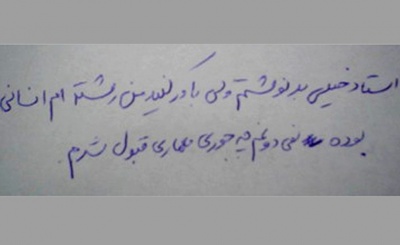 استاد خیلی بد نوشتم ولی باور کنید من رشته ام انسانی
بوده نمی دونم چه جوری معماری قبول شدم